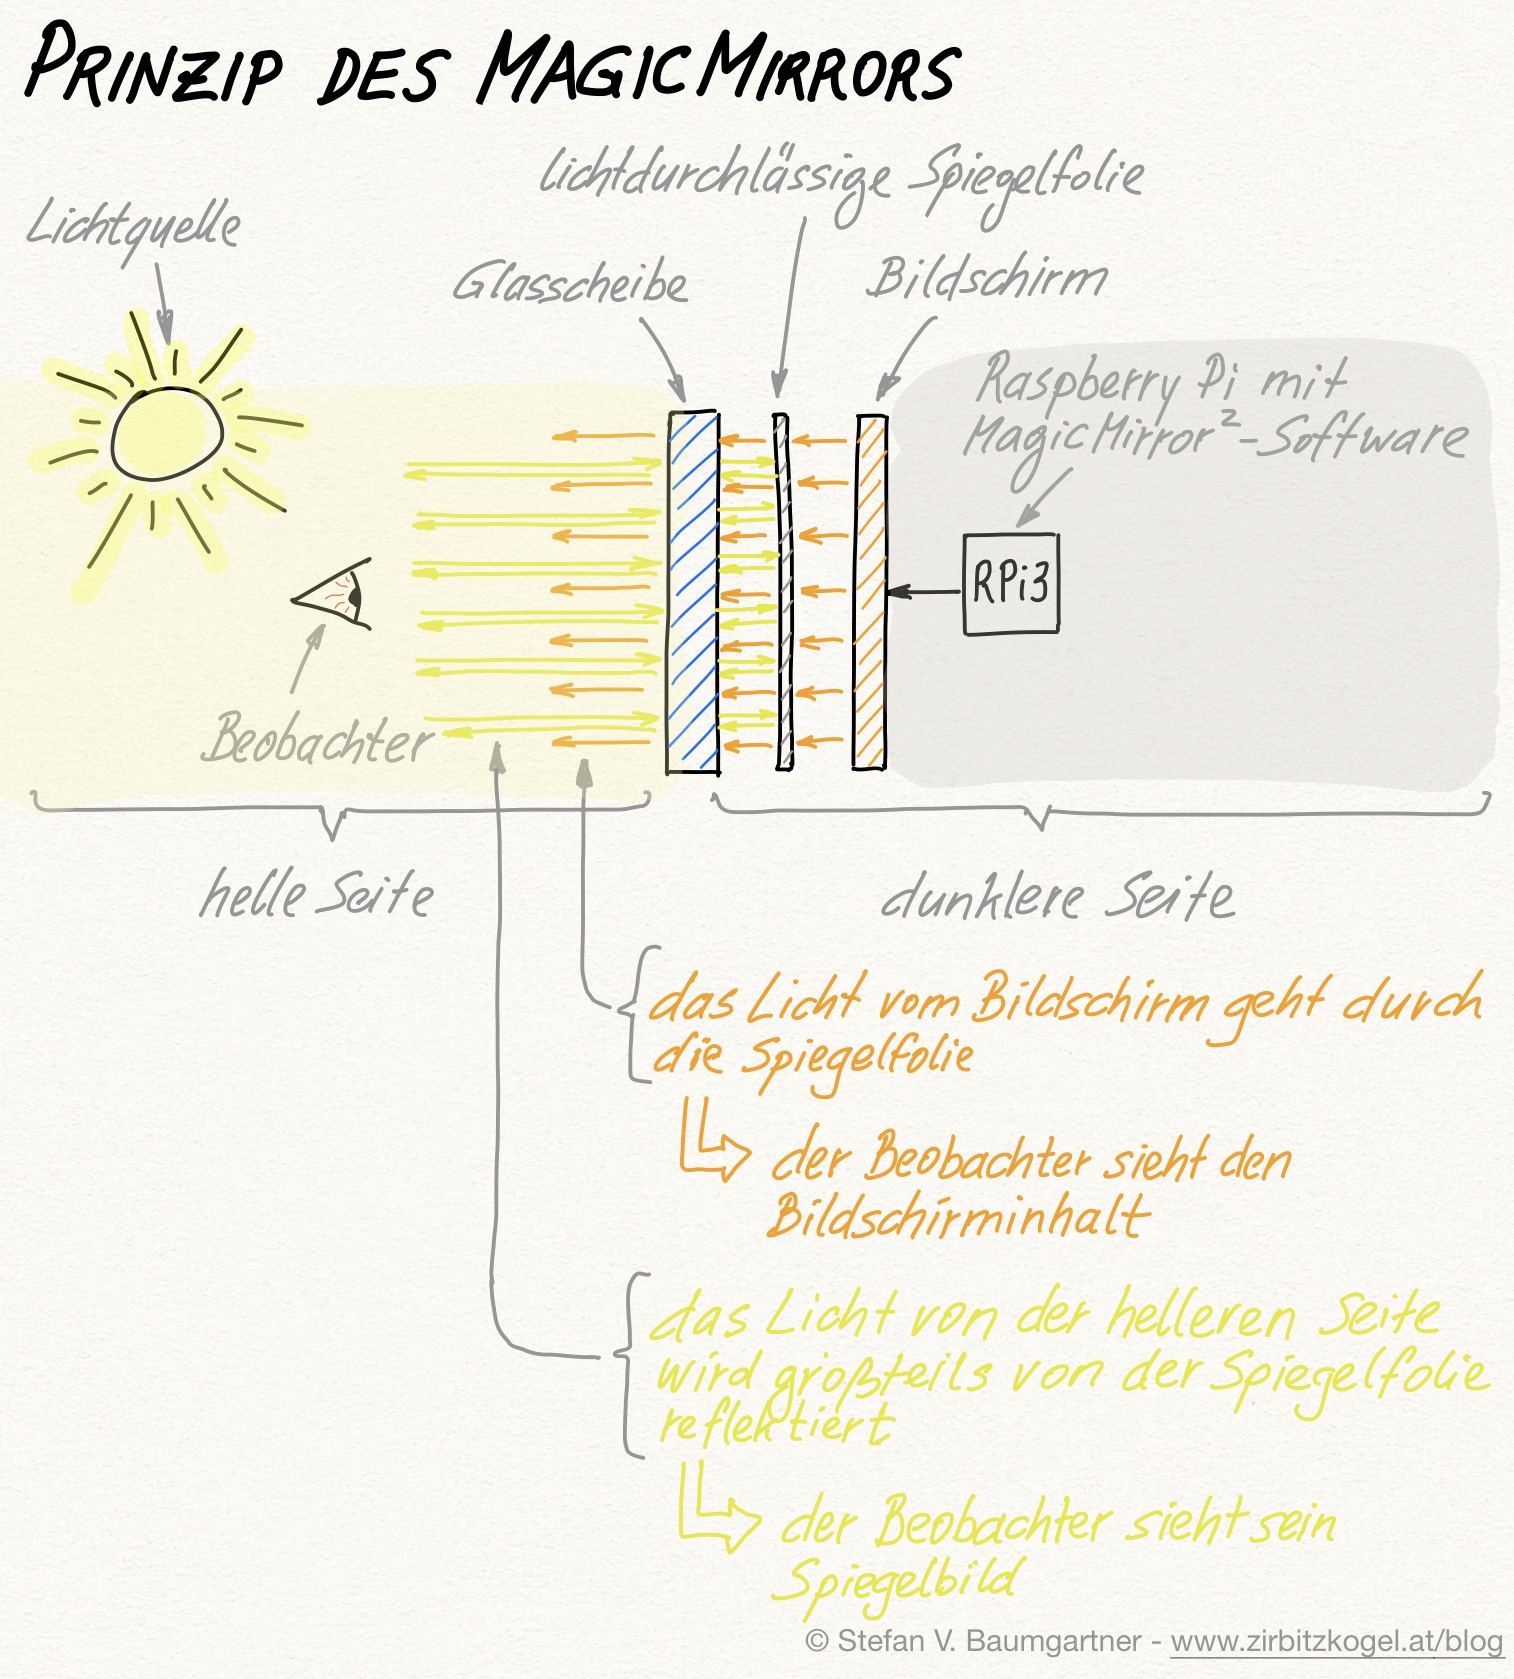 PRINZIP DES MAGICMIRRORS
lichtdurchlässige Spiegelfolie
Lichtquelle
Glasscheibe
Bildschirm
Raspberry Pi mit
MagicMirror²-Software
RPi3
Beobachter
helle Seite
dunklere Seite
das Licht vom Bildschirm geht durch
die Spiegelfolie
der Beobachter sieht den
Bildschirminhalt
das Licht von der helleren Seite
wird großteils von der Spiegelfolie
reflektiert
der Beobachter sieht sein
Spiegelbild
© Stefan V. Baumgartner - www.zirbitzkogel.at/blog